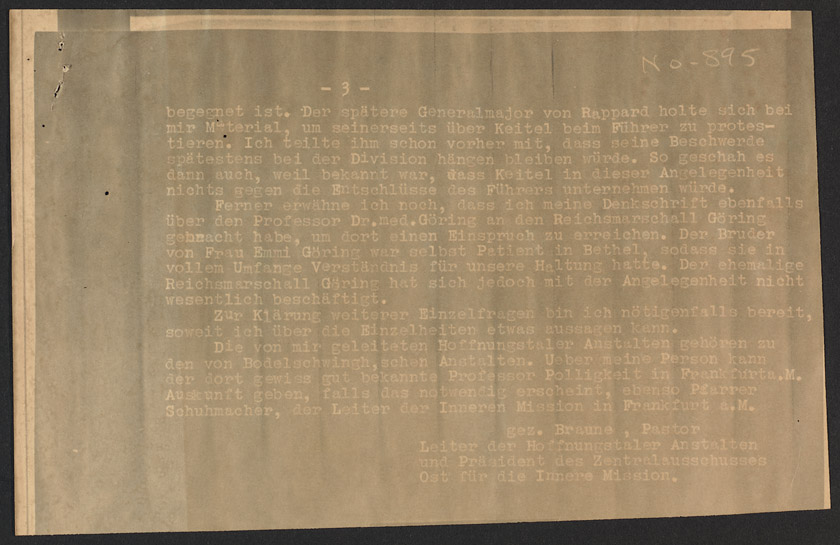 No-895
- 3 -
begegnet ist. Der spätere Generalmajor von Rappard holte sich bei
mir Material, um seinerseits über Keitel beim Führer zu protes-
tieren. Ich teilte ihm schon vorher mit, dass seine Beschwerde
spätestens bei der Division hängen bleiben würde. So geschah es
dann auch, weil bekannt war, dass Keitel in dieser Angelegenheit
nichts gegen die Entschlüsse des Führers unternehmen würde.
Ferner erwähne ich noch, dass ich meine Denkschrift ebenfalls
über den Professor Dr.med.Göring an den Reichsmarschall Göring
gebracht habe, um dort einen Einspruch zu erreichen. Der Bruder
von Frau Emmi Göring war selbst Patient in Bethel, sodass sie in
vollem Umfange Verständnis für unsere Haltung hatte. Der ehemalige
Reichsmarschall Göring hat sich jedoch mit der Angelegenheit nicht
wesentlich beschäftigt.
Zur Klärung weiterer Einzelfragen bin ich nötigenfalls bereit,
soweit ich über die Einzelheiten etwas aussagen kann.
Die von mir geleiteten Hoffnungstaler Anstalten gehören zu
den von Bodelschwingh,schen Anstalten. Ueber meine Person kann
der dort gewiss gut bekannte Professor Polligkeit in Frankfurta.M.
Auskunft geben, falls das notwendig erscheint, ebenso Pfarrer
Schuhmacher, der Leiter der Inneren Mission in Frankfurt a.M.
gez. Braune , Pastor
Leiter der Hoffnungstaler Anstalten
und Präsident des Zentralausschusses
Ost für die Innere Mission.